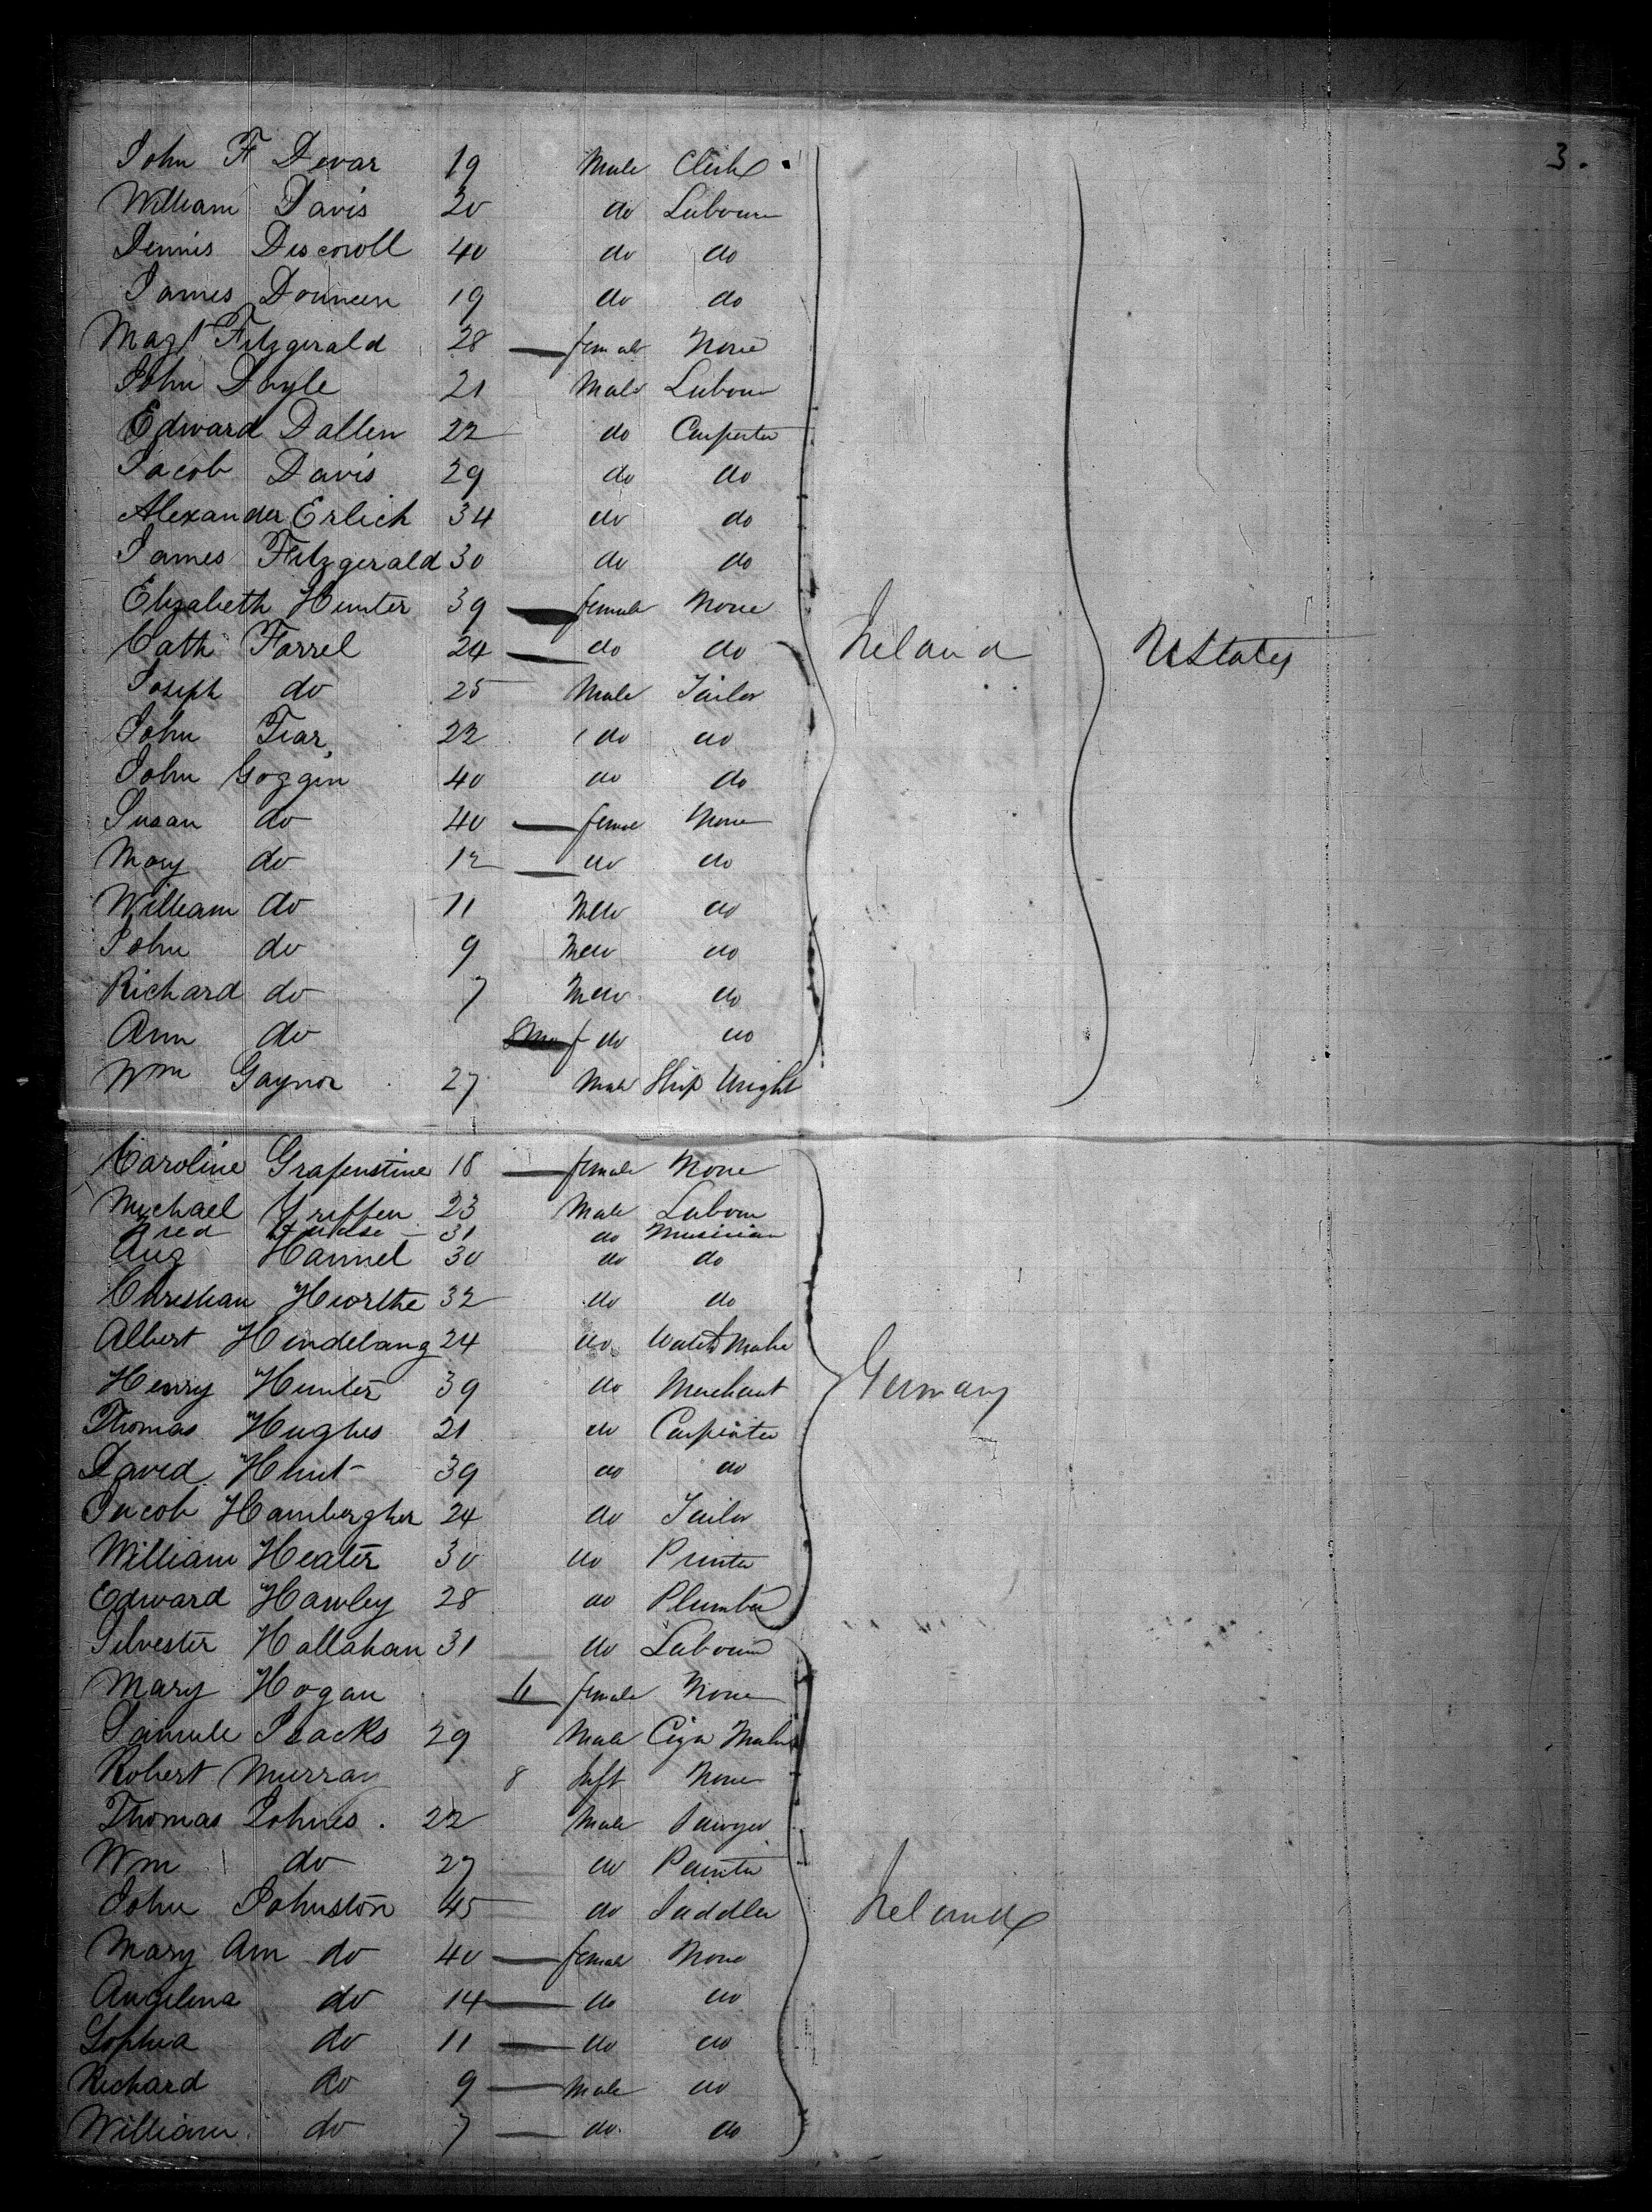 3.
John F Devar 19 Male Clerk
William Davis 20 do Labourer
Dennis Descroll 40 do do
James Douneen 19 do do
Magt Fitzgerald 28 female None
John Doyle 21 Male Labour
Edward Dallen 22 do Carpenter
Jacob Davis 29 do do
Alexander Erlich 34 do do
James Fitzgerald 30 do do
Elizabeth Hunter 39 female None
Cath Farrel 24 do do Ireland UStates
Joseph do 25 Male Tailor
John Fiar 22 do do
John Goggin 40 do do
Susan do 40 female None
Mary do 12 do do
William do 11 M do do
John do 9 M do do
Richard do 7 M do do
Ann do 8 Mo f do do
Wm Gaynor 27 Male Ship Wright
Caroline Grafenstine 18 female None
Michael Griffen 23 Male Labour
Fred 31 do Musician
Aug Hammel 30 do do
Christian Hiorthe 32 do do
Albert Hindelang 24 do Watch Make
Henry Hunter 39 do Merchant Germany
Thomas Hughes 21 do Carpenter
David Hunt 39 do do
Jacob Hambergher 24 do Tailor
William Heater 30 do Printer
Edward Hawley 28 do Plumber
Silvester Hallahan 31 do Labour
Mary Hogan female None
Samule Isacks 29 Male Ciga Maker
Robert Murray 8 Inft None
Thomas Johnes 22 Male Sawyer
Wm do 27 do Painter
John Johnston 45 do Saddler Ireland
Mary Ann do 40 female None
Angelina do 14 do do
Sophia do 11 do do
Richard do 9 Male do
William do 7 do do